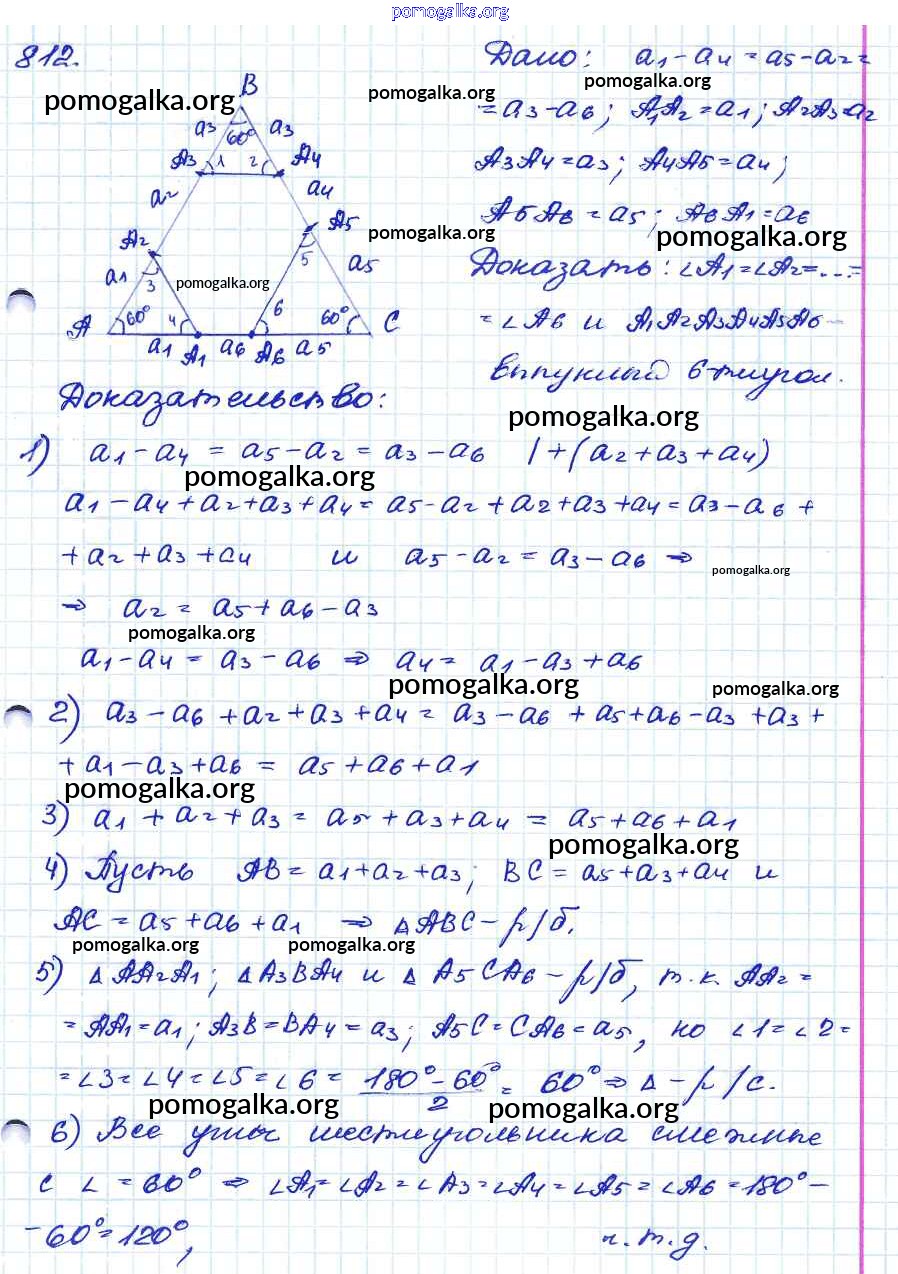 pomogalka.org
812.
Дано: a1-a4=a5-a2=
pomogalka.org
pomogalka.org
pomogalka.org
=a3-a6; A1A2=a1; A2A3=a2
A3A4=a3; A4A5=a4;
A5A6=a5; A6A1=a6
pomogalka.org
pomogalka.org
Доказать: ∠A1=∠A2=...=
=∠A6 и A1A2A3A4A5A6-
выпуклый 6-тиугол.
B
a3 60° a3
A3 1 2 A4
a2 a4
A2 A5
a1 3 5 a5
pomogalka.org
A 60° 4 6 60° C
a1 A1 a6 A6 a5
Доказательство:
pomogalka.org
1) a1-a4 = a5-a2 = a3-a6 |+(a2+a3+a4)
pomogalka.org
a1-a4+a2+a3+a4= a5-a2+a2+a3+a4= a3-a6+
+a2+a3+a4 и a5-a2=a3-a6 ⇒
pomogalka.org
⇒ a2= a5+a6-a3
pomogalka.org
a1-a4= a3-a6 ⇒ a4= a1-a3+a6
pomogalka.org
pomogalka.org
2) a3-a6+a2+a3+a4= a3-a6+a5+a6-a3+a3+
+a1-a3+a6= a5+a6+a1
pomogalka.org
3) a1+a2+a3= a5+a3+a4= a5+a6+a1
pomogalka.org
4) Пусть AB=a1+a2+a3; BC=a5+a3+a4 и
AC=a5+a6+a1 ⇒ ΔABC-р/б.
pomogalka.org
pomogalka.org
5) ΔAA2A1; ΔA3BA4 и ΔA5CA6-р/б, т.к. AA2=
=AA1=a1; A3B=BA4=a3; A5C=CA6=a5, но ∠1=∠2=
=∠3=∠4=∠5=∠6= (180°-60°)/2 = 60° ⇒ Δ-р/с.
pomogalka.org
pomogalka.org
6) Все углы шестиугольника смежные
с ∠=60° ⇒ ∠A1=∠A2=∠A3=∠A4=∠A5=∠A6=180°-
-60°=120°,
ч.т.д.